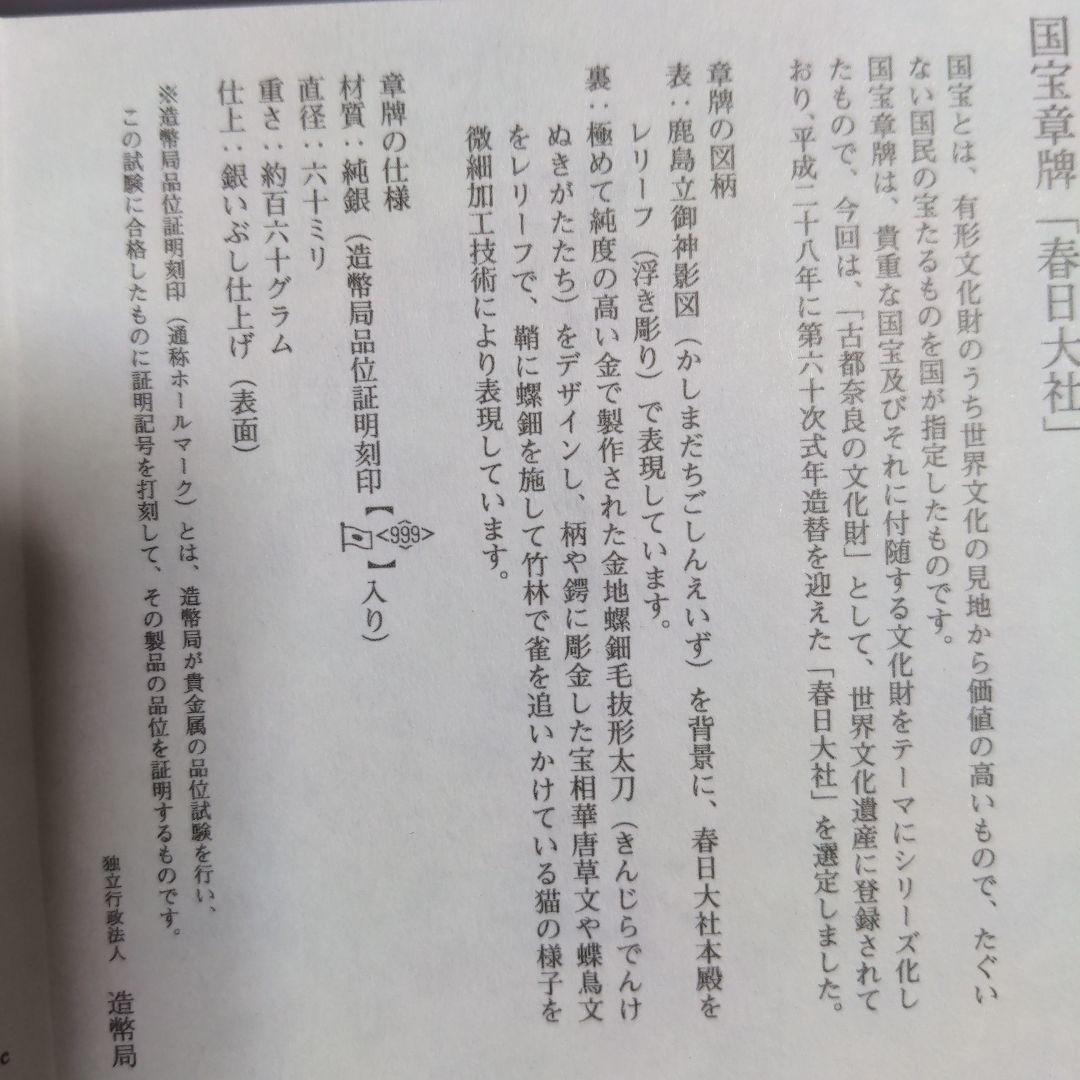 国宝章牌「春日大社」
国宝とは、有形文化財のうち世界文化の見地から価値の高いもので、たぐい
ない国民の宝たるものを国が指定したものです。
国宝章牌は、貴重な国宝及びそれに付随する文化財をテーマにシリーズ化し
たもので、今回は、「古都奈良の文化財」として、世界文化遺産に登録されて
おり、平成二十八年に第六十次式年造替を迎えた「春日大社」を選定しました。
章牌の図柄
表：鹿島立御神影図（かしまだちごしんえいず）を背景に、春日大社本殿を
レリーフ（浮き彫り）で表現しています。
裏：極めて純度の高い金で製作された金地螺鈿毛抜形太刀（きんじらでんけ
ぬきがたたち）をデザインし、柄や鍔に彫金した宝相華唐草文や蝶鳥文
をレリーフで、鞘に螺鈿を施して竹林で雀を追いかけている猫の様子を
微細加工技術により表現しています。
章牌の仕様
材質：純銀（造幣局品位証明刻印【<999>】入り）
直径：六十ミリ
重さ：約百六十グラム
仕上：銀いぶし仕上げ（表面）
※造幣局品位証明刻印（通称ホールマーク）とは、造幣局が貴金属の品位試験を行い、
この試験に合格したものに証明記号を打刻して、その製品の品位を証明するものです。
独立行政法人 造幣局
c